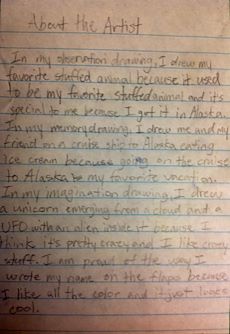 About the Artist
In my observation drawing, I drew my
favorite stuffed animal because it used
to be my favorite stuffed animal and it's
special to me because I got it in Alaska.
In my memory drawing, I drew me and my
friend on a cruise ship to Alaska eating
Ice cream because going on the cruise
to Alaska is my favorite vacation.
In my imagination drawing, I drew
a unicorn emerging from a cloud and a
UFO with an alien inside it because I
think it's pretty crazy and I like crazy
stuff. I am proud of the way I
wrote my name on the flaps because
I like all the color and it just looks
cool.